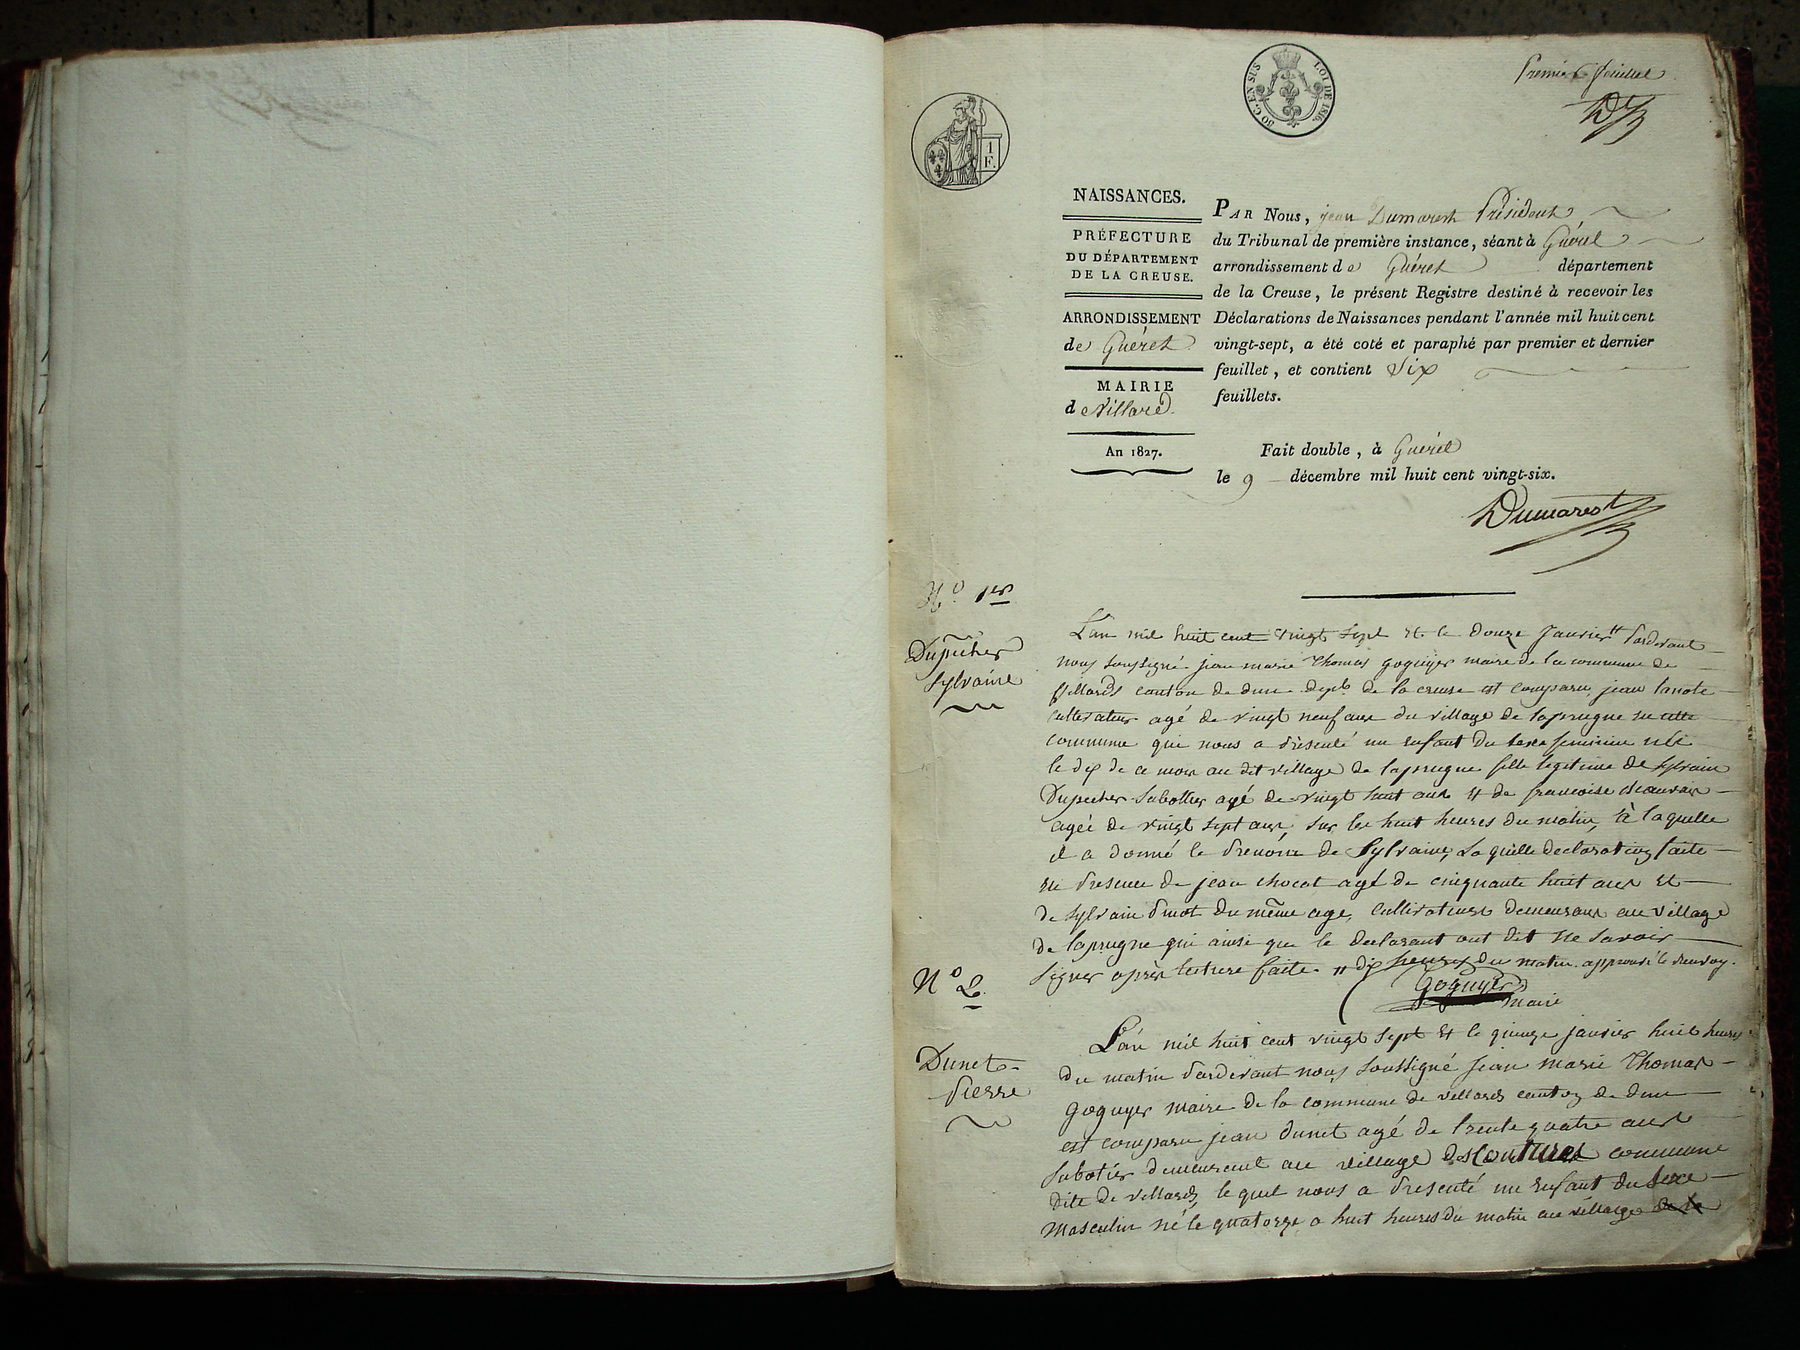 Premier feuillet
30 C. EN SUS
LOI DE 1816.
1
F.
NAISSANCES.
PRÉFECTURE
DU DÉPARTEMENT
DE LA CREUSE.
ARRONDISSEMENT
de Guéret
MAIRIE
de Villard
An 1827.
PAR Nous, jean Dumarest Président
du Tribunal de première instance, séant à Guéret
arrondissement de Guéret département
de la Creuse, le présent Registre destiné à recevoir les
Déclarations de Naissances pendant l'année mil huit cent
vingt-sept, a été coté et paraphé par premier et dernier
feuillet, et contient Six
feuillets.
Fait double, à Guéret
le 9 décembre mil huit cent vingt-six.
Dumarest
N.º 1er
Dupecher
Sylvaine
L'an mil huit cent vingt sept et le douze janvier " pardevant
nous soussigné jean marie thomas goguyer maire de la commune de
villards canton de dun dept de la creuse est comparu jean
cultivateur agé de vingt neuf ans du village de laprugne sus cette
commune qui nous a présenté un enfant du sexe feminin née
le dix de ce mois au dit village de laprugne fille legitime de Sylvain
Dupecher Sabottier agé de vingt huit ans et de francoise
agée de vingt sept ans, sur les huit heures du matin, à laquelle
il a donné le prenom de Sylvaine, la quelle declaration faite
en presence de jean chocat agé de cinquante huit ans et
de sylvain du même age, cultivateurs demeurant au village
de laprugne qui ainsi que le declarant ont dit ne savoir
signer après lecture faite. " dix heures du matin. approuvé le renvoy.
Goguyer
maire
N.º 2.
Dunet
Pierre
L'an mil huit cent vingt sept et le quinze janvier huit heures
du matin pardevant nous soussigné jean marie Thomas
goguyer maire de la commune de villards canton de dun
est comparu jean dunet agé de trente quatre ans
sabotier demeurant au village des Coutures commune
dite de villards, le quel nous a presenté un enfant du sexe
masculin né le quatorze a huit heures du matin au village de la